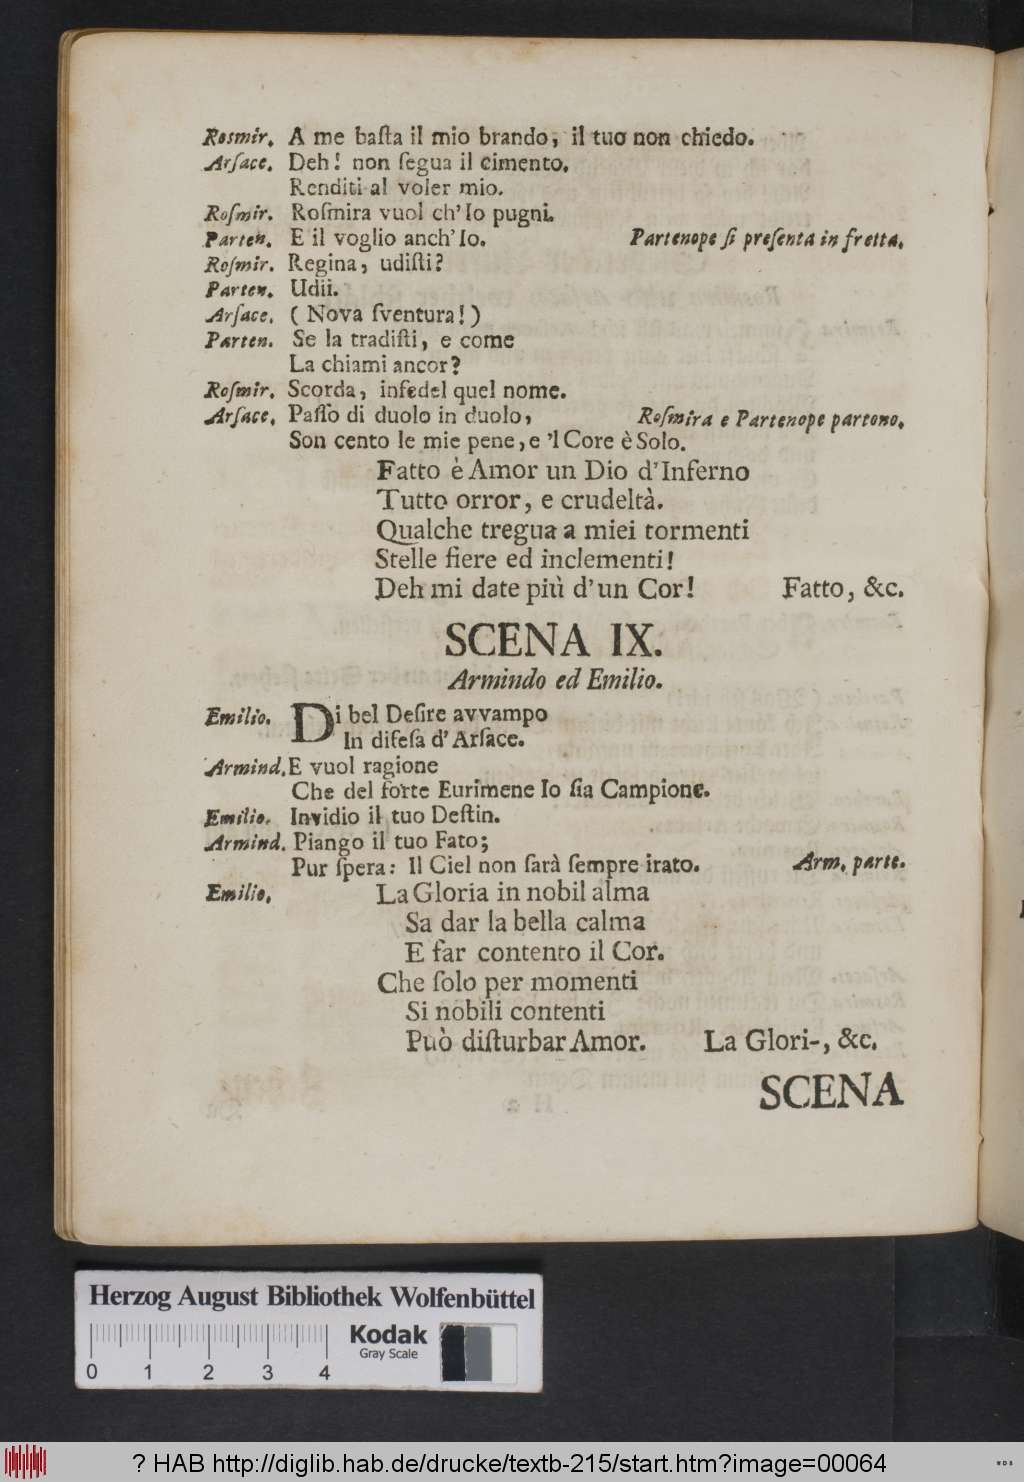 Rosmir. A me baſta il mio brando, il tuo non chiedo.
Arſace. Deh! non ſegua il cimento.
Renditi al voler mio.
Roſmir. Roſmira vuol ch'Io pugni.
Parten. E il voglio anch'Io. Partenope ſi preſenta in fretta.
Roſmir. Regina, udiſti?
Parten. Udii.
Arſace. ( Nova ſventura! )
Parten. Se la tradiſti, e come
La chiami ancor?
Roſmir. Scorda, infedel quel nome.
Arſace. Paſſo di duolo in duolo, Roſmira e Partenope partono.
Son cento le mie pene, e 'l Core è Solo.
Fatto è Amor un Dio d'Inferno
Tutto orror, e crudeltà.
Qualche tregua a miei tormenti
Stelle fiere ed inclementi!
Deh mi date più d'un Cor! Fatto, &c.
SCENA IX.
Armindo ed Emilio.
Emilio. Di bel Deſire avvampo
In difeſa d'Arſace.
Armind. E vuol ragione
Che del forte Eurimene Io ſia Campione.
Emilio. Invidio il tuo Deſtin.
Armind. Piango il tuo Fato;
Pur ſpera: Il Ciel non ſarà ſempre irato. Arm. parte.
Emilio. La Gloria in nobil alma
Sa dar la bella calma
E far contento il Cor.
Che ſolo per momenti
Si nobili contenti
Può diſturbar Amor. La Glori-, &c.
SCENA
Herzog August Bibliothek Wolfenbüttel
Kodak
Gray Scale
0 1 2 3 4
? HAB http://diglib.hab.de/drucke/textb-215/start.htm?image=00064